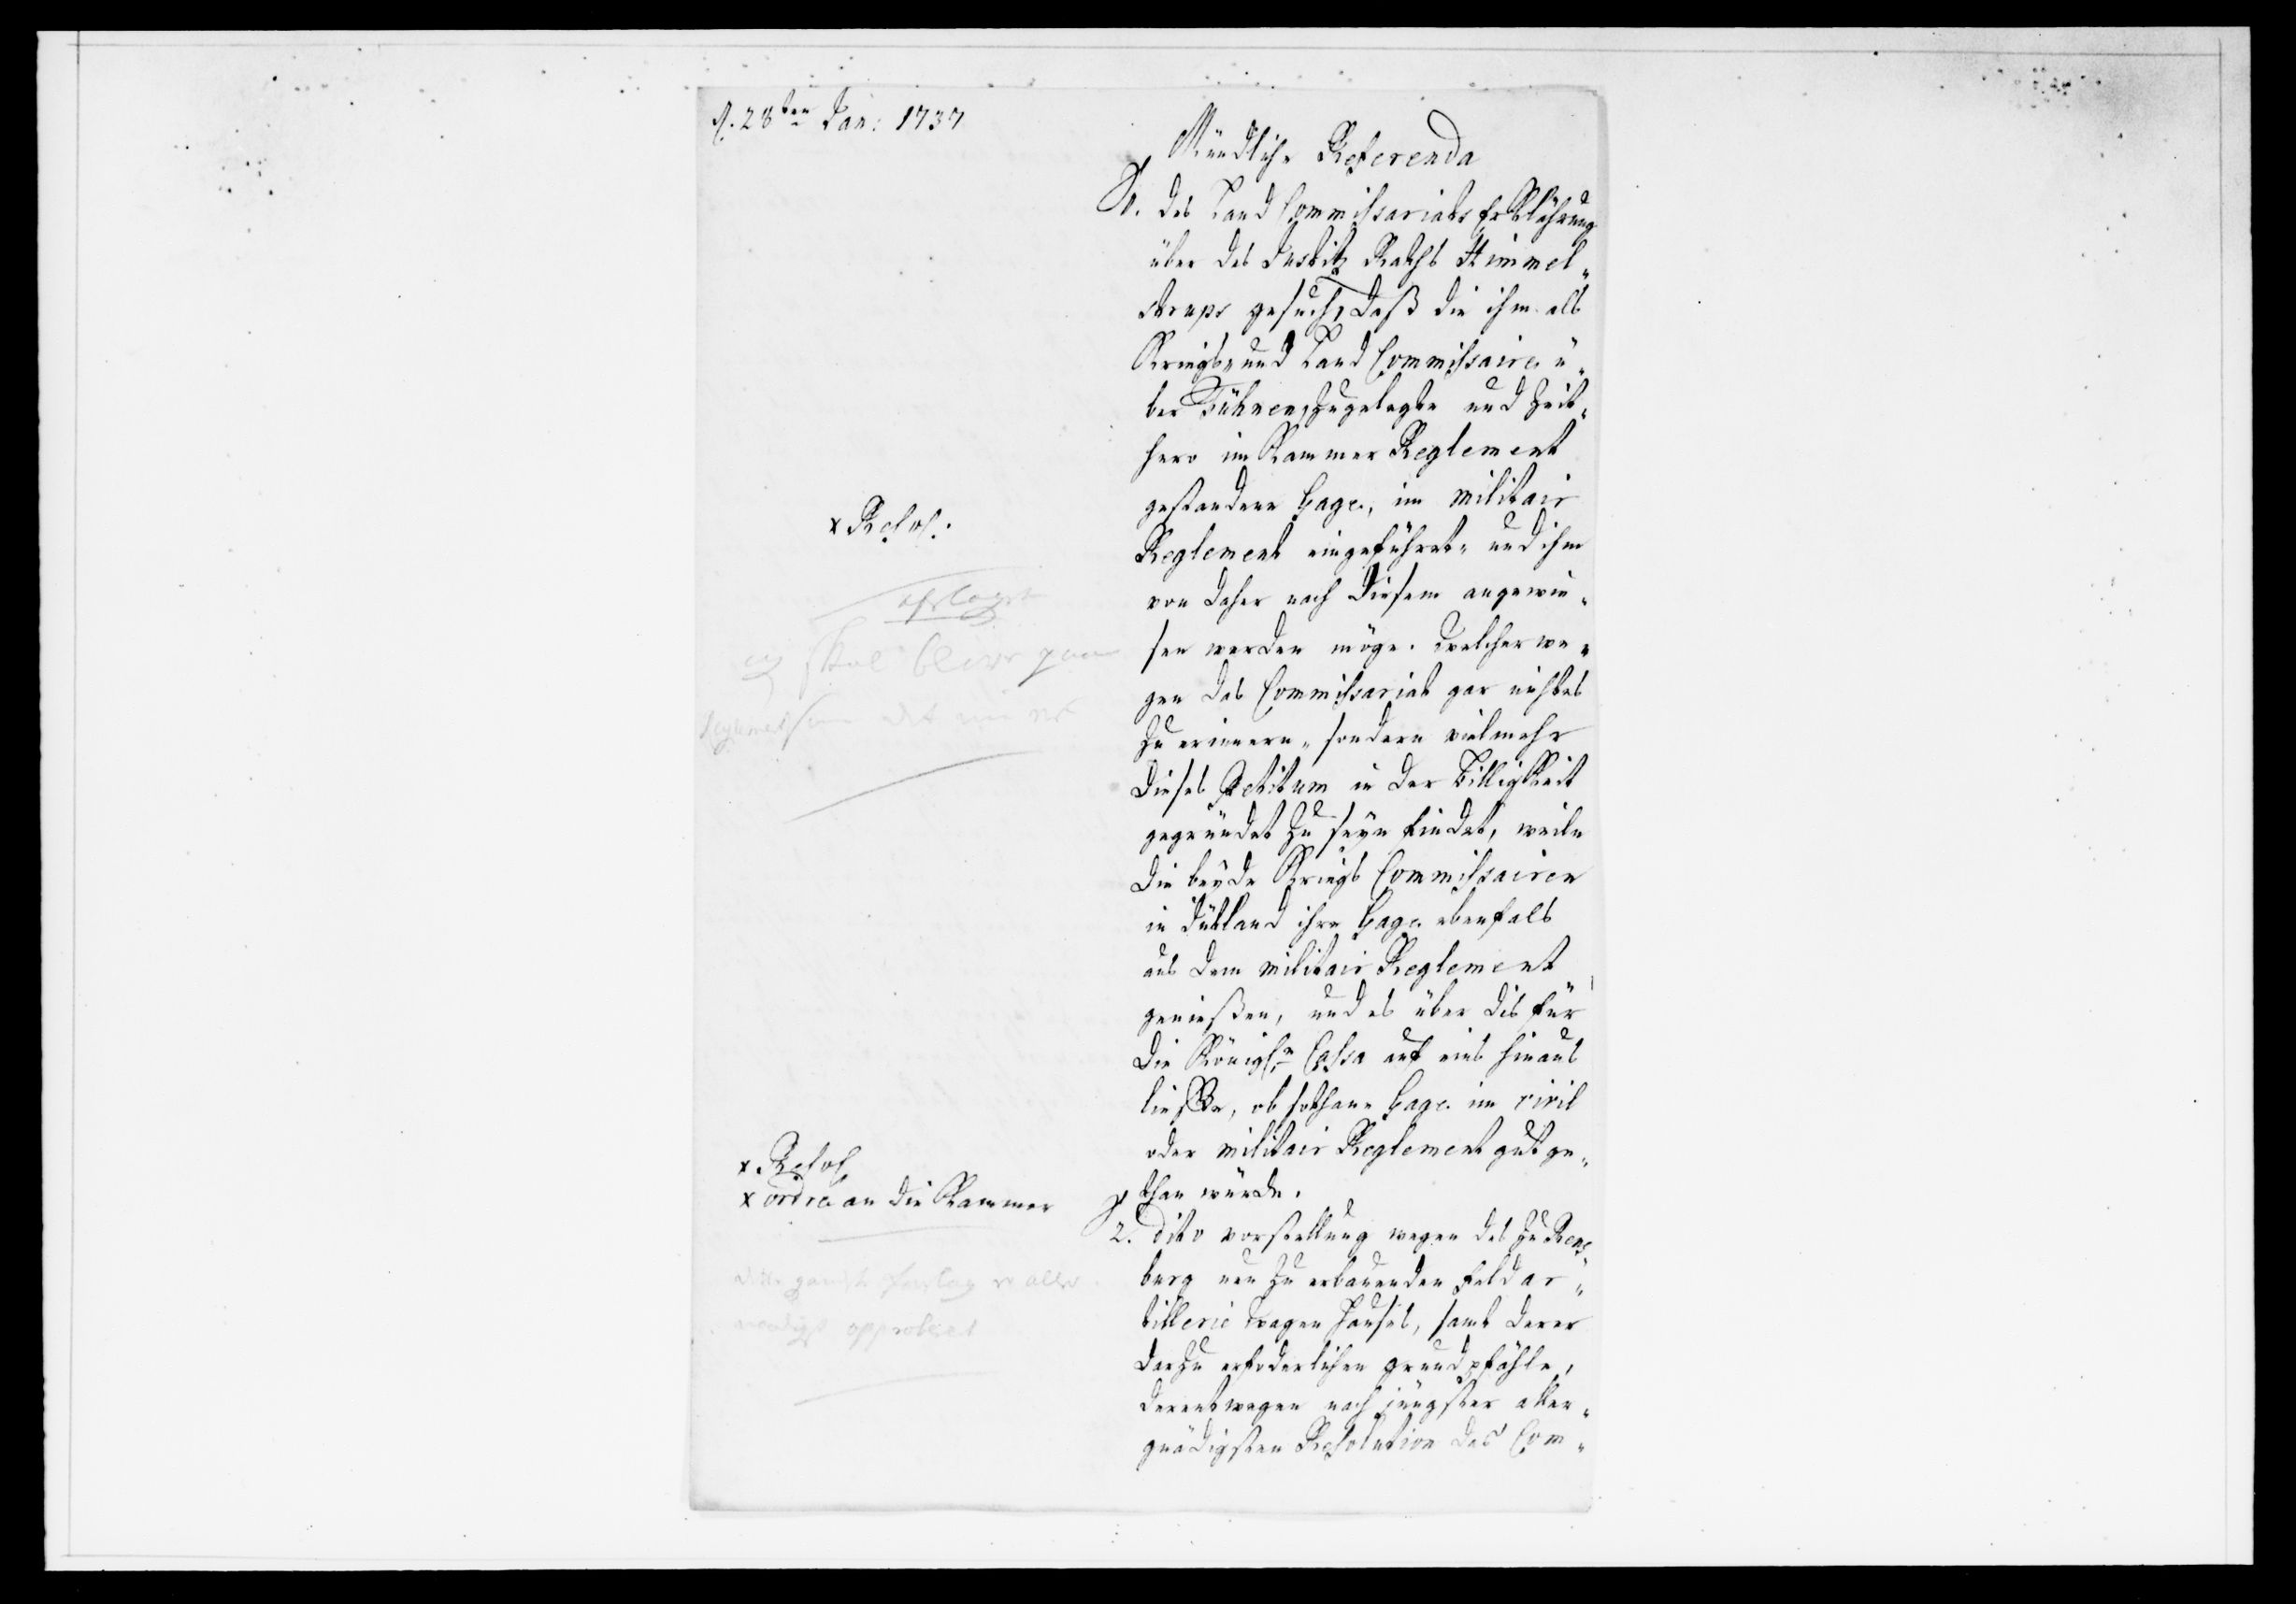 d. 28ten Jan: 1737
Mündliche Referenda
1. des Land Commissariats Erklährung
über des Justitz Raths Himmel„
strups gesuch, daß die ihm als
Kriegs- und Land Commissaire ü„
ber Fühnen, zugelegte und Zeit„
hero im Kammer Reglement
gestandene Gage, im militair
Reglement eingeführet, und ihm
von daher nach diesem angewie„
sen werden möge. Welcher we„
gen das Commissariat gar nichtes
zu erinnern, sondern vielmehr
dieses Petitum in der Billigkeit
gegründet zu seyn findet, weile
die beyde Kriegs Commissairen
in Jütland ihre Gage ebenfals
aus dem militair Reglement
genießen, und es über dis für
die Königl. Cassa auf eins hinaus
lieffe, ob sothane Gage im civil
oder militair Reglement gut ge„
than würde.
x Resol.
afslaget
skal blive paa
Reglemet som det nu er
2. dito vorstellung wegen des zu Rens„
burg neu zu erbauenden Feld ar„
tillerie Wagen Hauses, samt derer
darzu erfoderlichen grundpfähle,
derentwegen nach jüngster aller„
gnädigsten Resolution das Com„
x. Resol.
x ordre an die Kammer
dette gandske forslag er aller
naadigst approberet